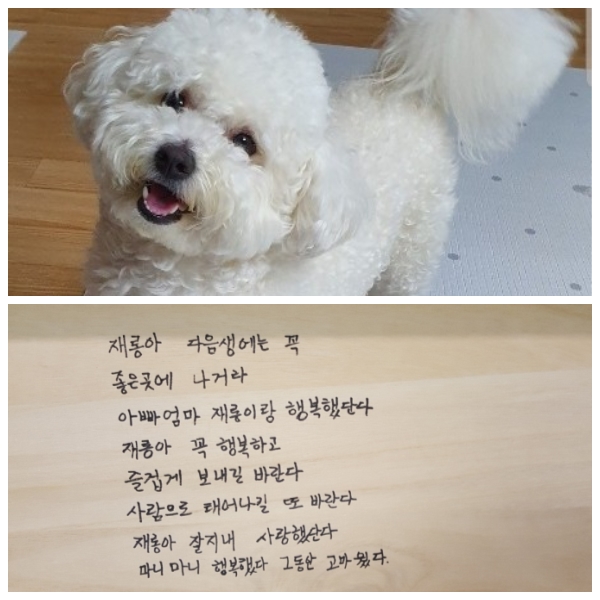 재롱아 다음생에는 꼭
좋은곳에 나거라
아빠엄마 재롱이랑 행복했단다
재롱아 꼭 행복하고
즐겁게 보내길 바란다
사람으로 태어나길 또 바란다
재롱아 잘지내 사랑했단다
마니 마니 행복했다 그동안 고마웠다.